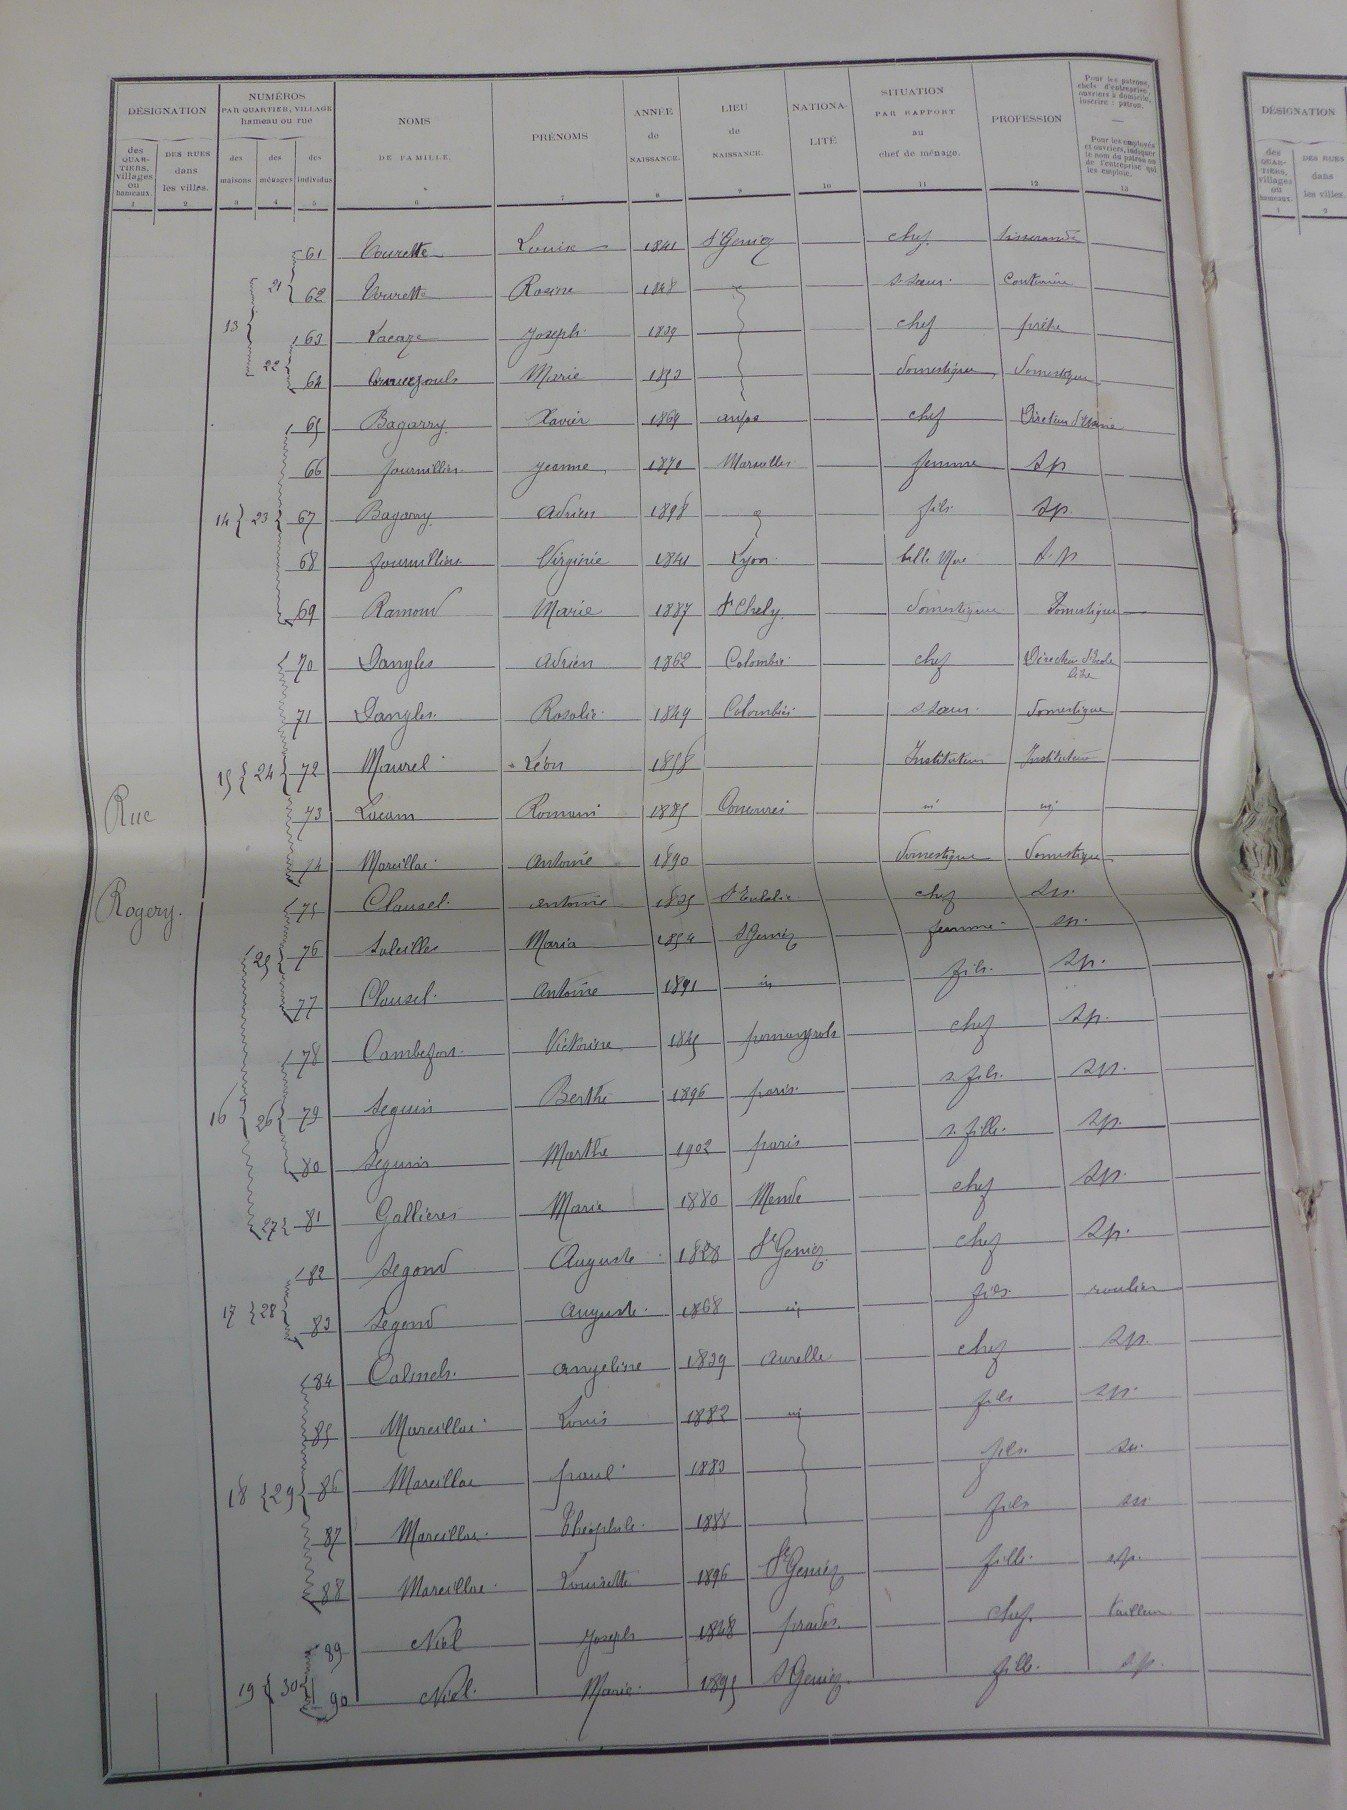 DÉSIGNATION NUMÉROS PAR QUARTIER, VILLAGE hameau ou rue NOMS DE FAMILLE. PRÉNOMS ANNÉE de NAISSANCE. LIEU de NAISSANCE. NATIONA-LITÉ SITUATION PAR RAPPORT au chef de ménage. PROFESSION Pour les patrons, chefs d'entreprise, ouvriers à domicile, inscrire : patron. — Pour les employés et ouvriers, indiquer le nom du patron ou de l'entreprise qui les emploie. DÉSIGNATION
des QUAR-TIERS, villages ou hameaux. DES RUES dans les villes. des maisons des ménages des individus des QUAR-TIERS, villages ou hameaux. DES RUES dans les villes.
1 2 3 4 5 6 7 8 9 10 11 12 13 1 2
61 Tourette Louise 1841 St Geniez chef
13 21 62 Tourette Rosine 1848 s. soeur. Couturière
63 Lacaze Joseph 1839 chef prêtre
22 64 Marie 1853 domestique domestique
65 Bagarry Xavier 1869 aups chef Directeur d'Usine
66 fournillier Jeanne 1870 Marseille femme sp
14 23 67 Bagarry Adrien 1898 fils sp
68 fournillier Virginie 1841 Lyon belle Mère s.p
69 Ramond Marie 1887 St Chely domestique Domestique
70 Dangles Adrien 1862 Colombiè chef Directeur d'école libre
71 Dangles Rosalie 1849 Colombiès s. soeur. domestique
15 24 72 Maurel Léon 1858 Instituteur Instituteur
Rue 73 Lacam Romain 1885 id id
74 Marcillac Antoine 1890 domestique domestique
Rogery. 75 Clausel Antoine 1835 St Eulalie chef sp.
25 76 Soleilles Maria 1854 St Geniez femme sp.
77 Clausel Antoine 1891 id fils. sp.
78 Cambefort Victorine 1845 chef sp.
16 26 79 Seguin Berthe 1896 paris. s. fils. sp.
80 Seguin Marthe 1902 paris s. fille. sp.
27 81 Gallières Marie 1880 Mende chef sp.
82 Segond Auguste 1828 St Geniez chef sp.
17 28 83 Segond Auguste 1868 id fils roulier
84 Calmels Angeline 1839 Aurelle chef sp.
85 Marcillac Louis 1882 id fils sp.
18 29 86 Marcillac paul 1883 fils sp.
87 Marcillac Théophile 1888 fils sp.
88 Marcillac Louisette 1896 St Geniez fille. sp.
89 Niel Joseph 1848 prades chef. tailleur
19 30 90 Niel Marie 1895 St Geniez fille. sp.